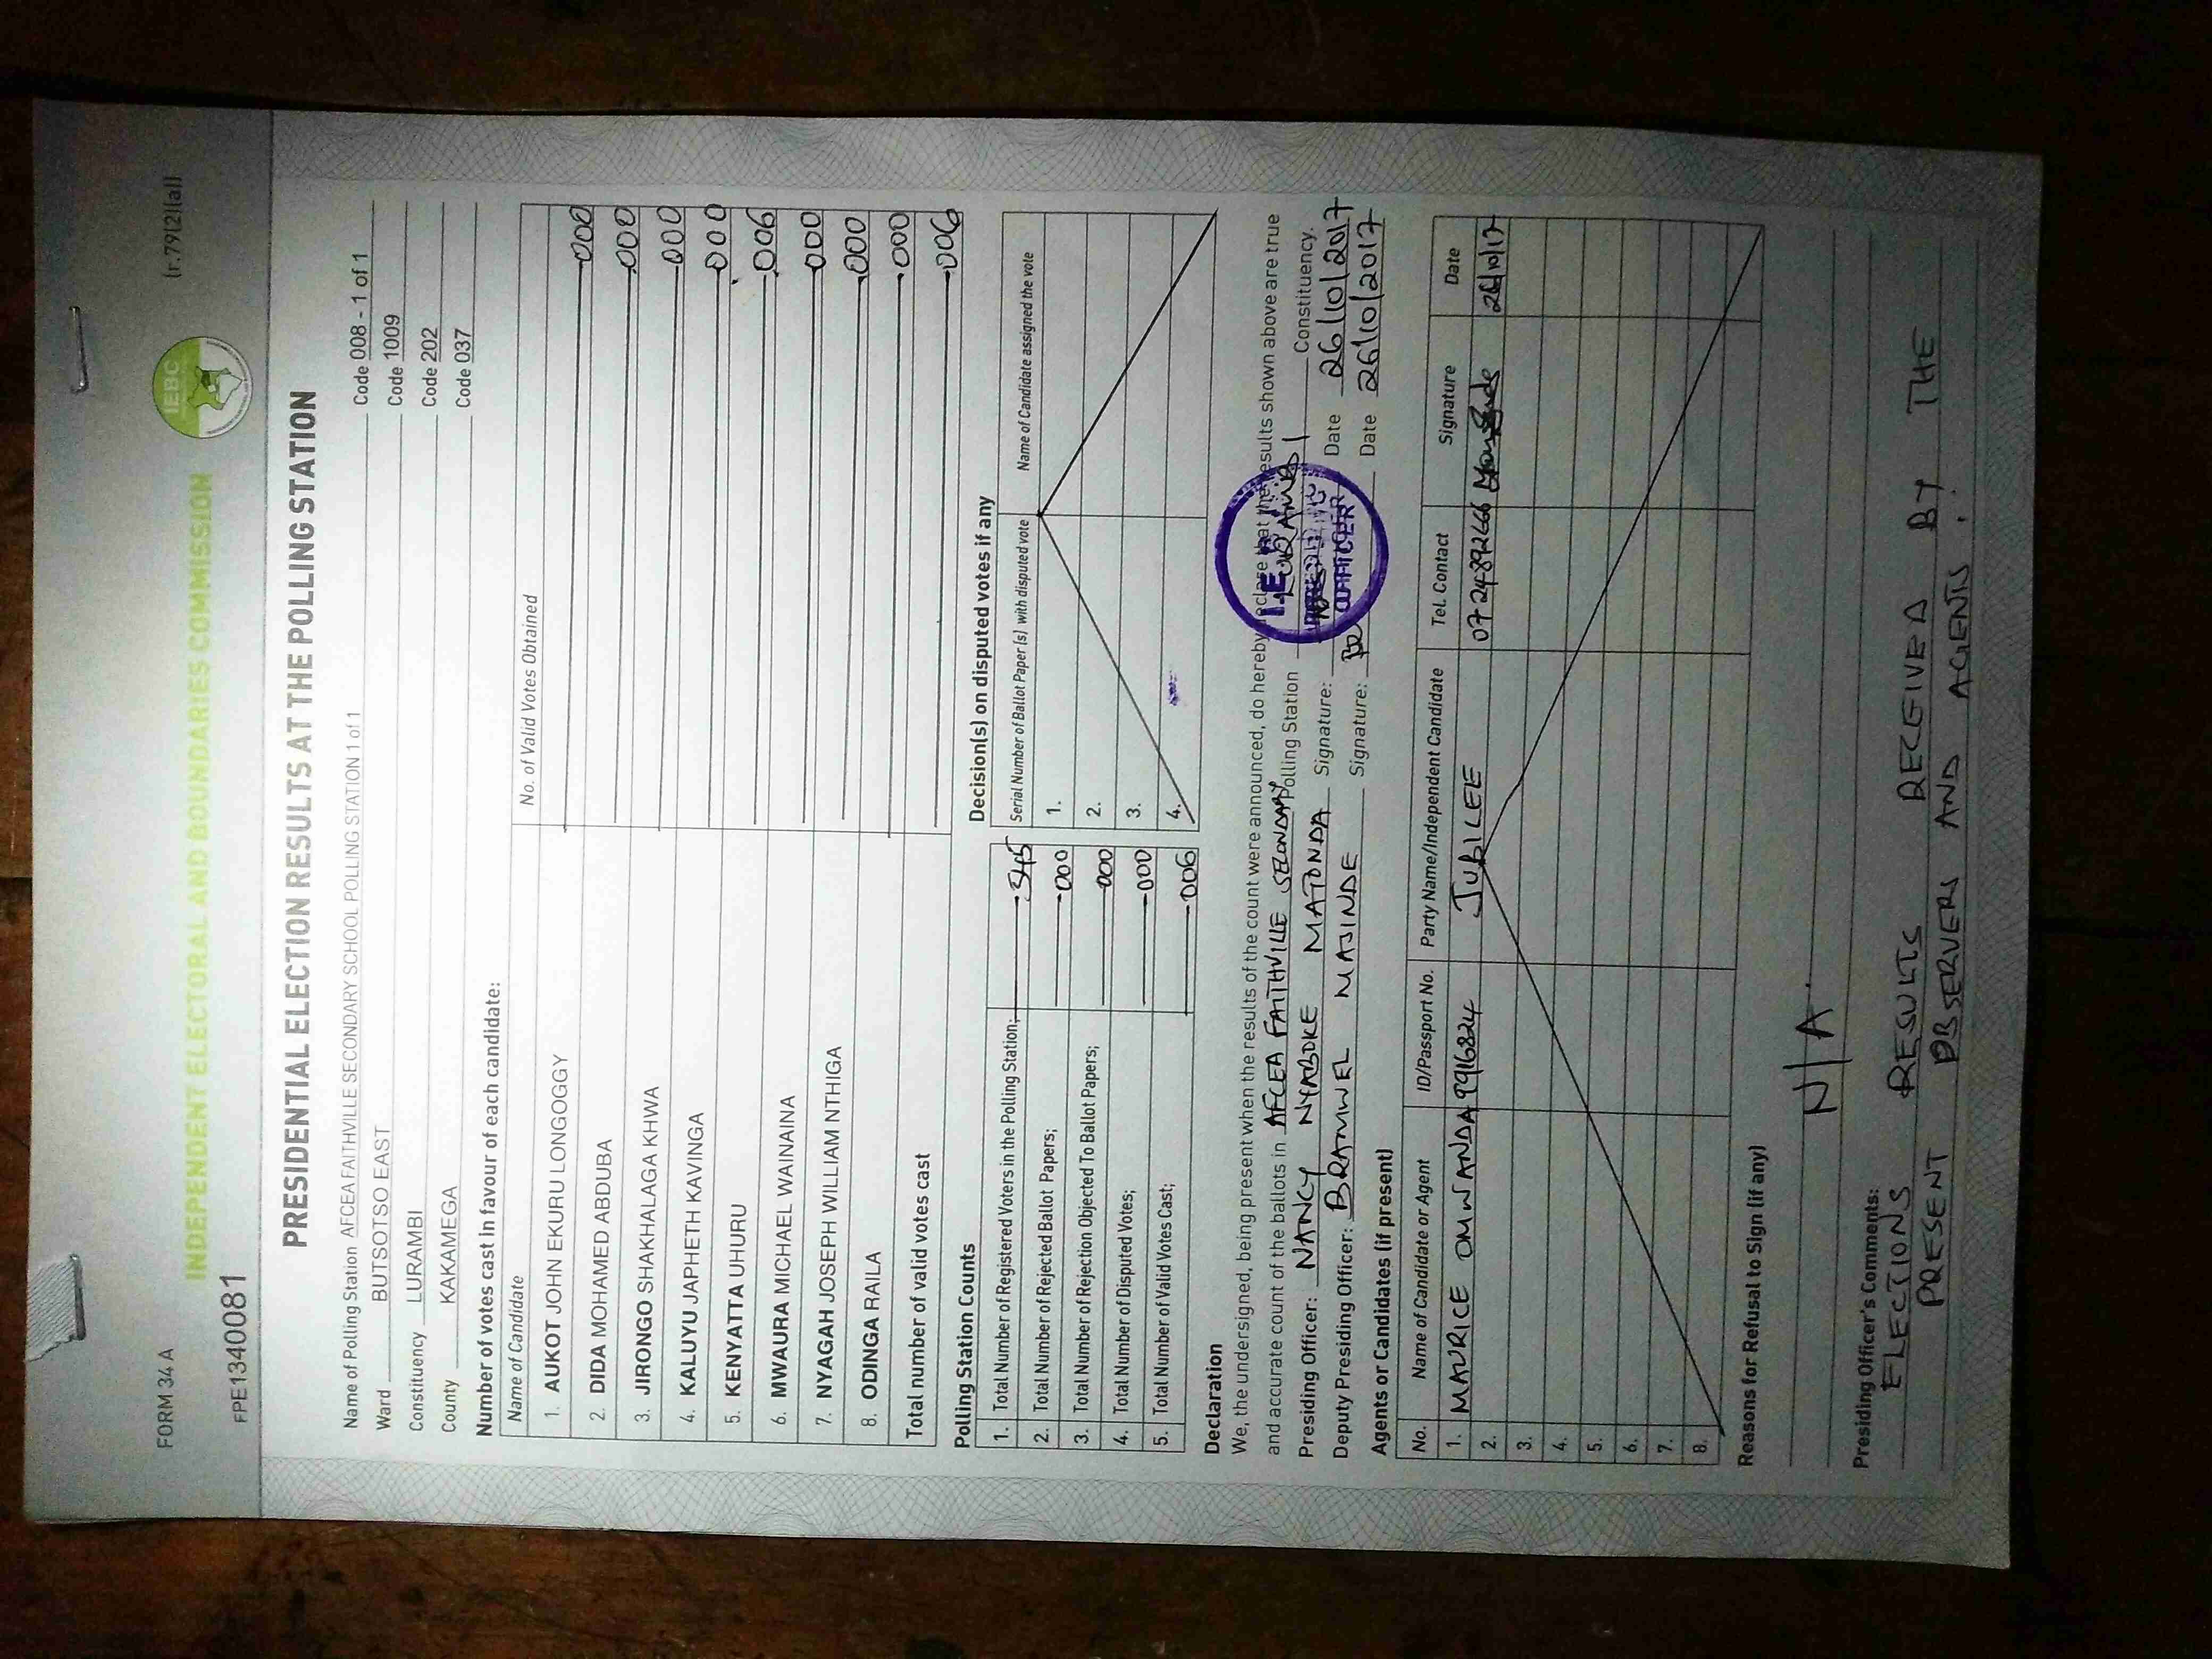 FORM 34 A
(r.79(2)(a))
IEBC
INDEPENDENT ELECTORAL AND BOUNDARIES COMMISSION
FPE1340081
PRESIDENTIAL ELECTION RESULTS AT THE POLLING STATION
Name of Polling Station AFCEA FAITHVILLE SECONDARY SCHOOL POLLING STATION 1 of 1 Code 008 - 1 of 1
Ward BUTSOTSO EAST Code 1009
Constituency LURAMBI Code 202
County KAKAMEGA Code 037
Number of votes cast in favour of each candidate:
Name of Candidate No. of Valid Votes Obtained
1. AUKOT JOHN EKURU LONGOGGY 000
2. DIDA MOHAMED ABDUBA 000
3. JIRONGO SHAKHALAGA KHWA 000
4. KALUYU JAPHETH KAVINGA 000
5. KENYATTA UHURU 006
6. MWAURA MICHAEL WAINAINA 000
7. NYAGAH JOSEPH WILLIAM NTHIGA 000
8. ODINGA RAILA 000
Total number of valid votes cast 006
Polling Station Counts
1. Total Number of Registered Voters in the Polling Station; 545
2. Total Number of Rejected Ballot Papers; 000
3. Total Number of Rejection Objected To Ballot Papers; 000
4. Total Number of Disputed Votes; 000
5. Total Number of Valid Votes Cast; 006
Decision(s) on disputed votes if any
Serial Number of Ballot Paper (s) with disputed vote Name of Candidate assigned the vote
1.
2.
3.
4.
Declaration
We, the undersigned, being present when the results of the count were announced, do hereby declare that the results shown above are true
and accurate count of the ballots in AFCEA FAITHVILLE SECONDARY Polling Station LURAMBI Constituency.
Presiding Officer: NANCY NYABOKE MATONDA Signature: Date 26/10/2017
Deputy Presiding Officer: BRAMWEL MAJINDE Signature: Date 26/10/2017
OFFICER
Agents or Candidates (if present)
No. Name of Candidate or Agent ID/Passport No. Party Name/Independent Candidate Tel. Contact Signature Date
1. MAURICE OMWANDA 9916824 JUBILEE 26/10/17
2.
3.
4.
5.
6.
7.
8.
Reasons for Refusal to Sign (if any)
N/A.
Presiding Officer's Comments:
ELECTIONS RESULTS RECEIVED BY THE
PRESENT OBSERVERS AND AGENTS.